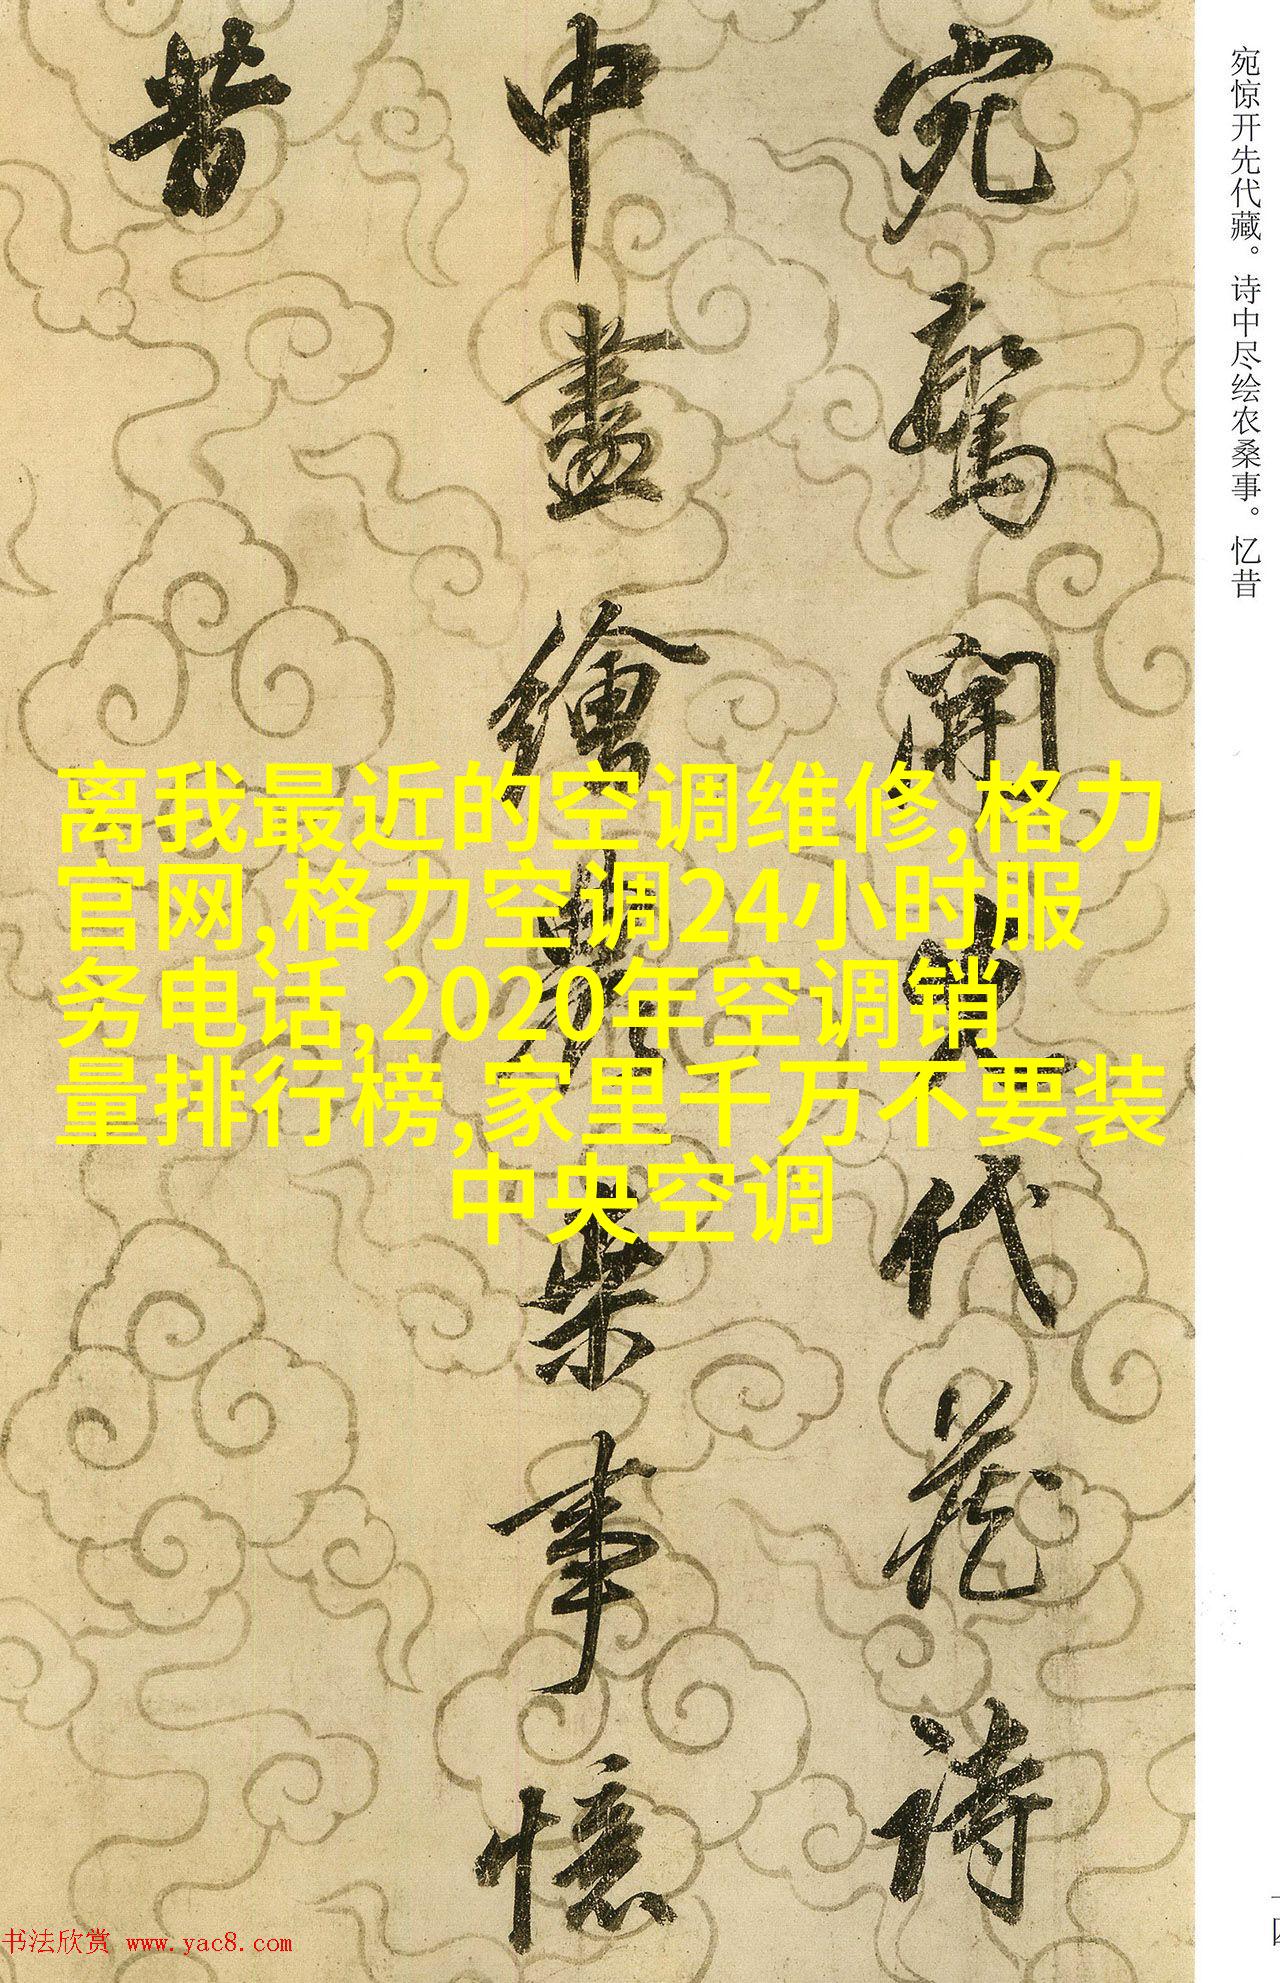 宛惊开先代藏。诗中尽绘农桑事。忆昔
宛驚開先代藏詩
中盡繪農桑事憶
昔
离我最近的空调维修,格力
官网,格力空调24小时服
务电话,2020年空调销
量排行榜,家里千万不要装
中央空调
书法欣赏 www.yac8.com